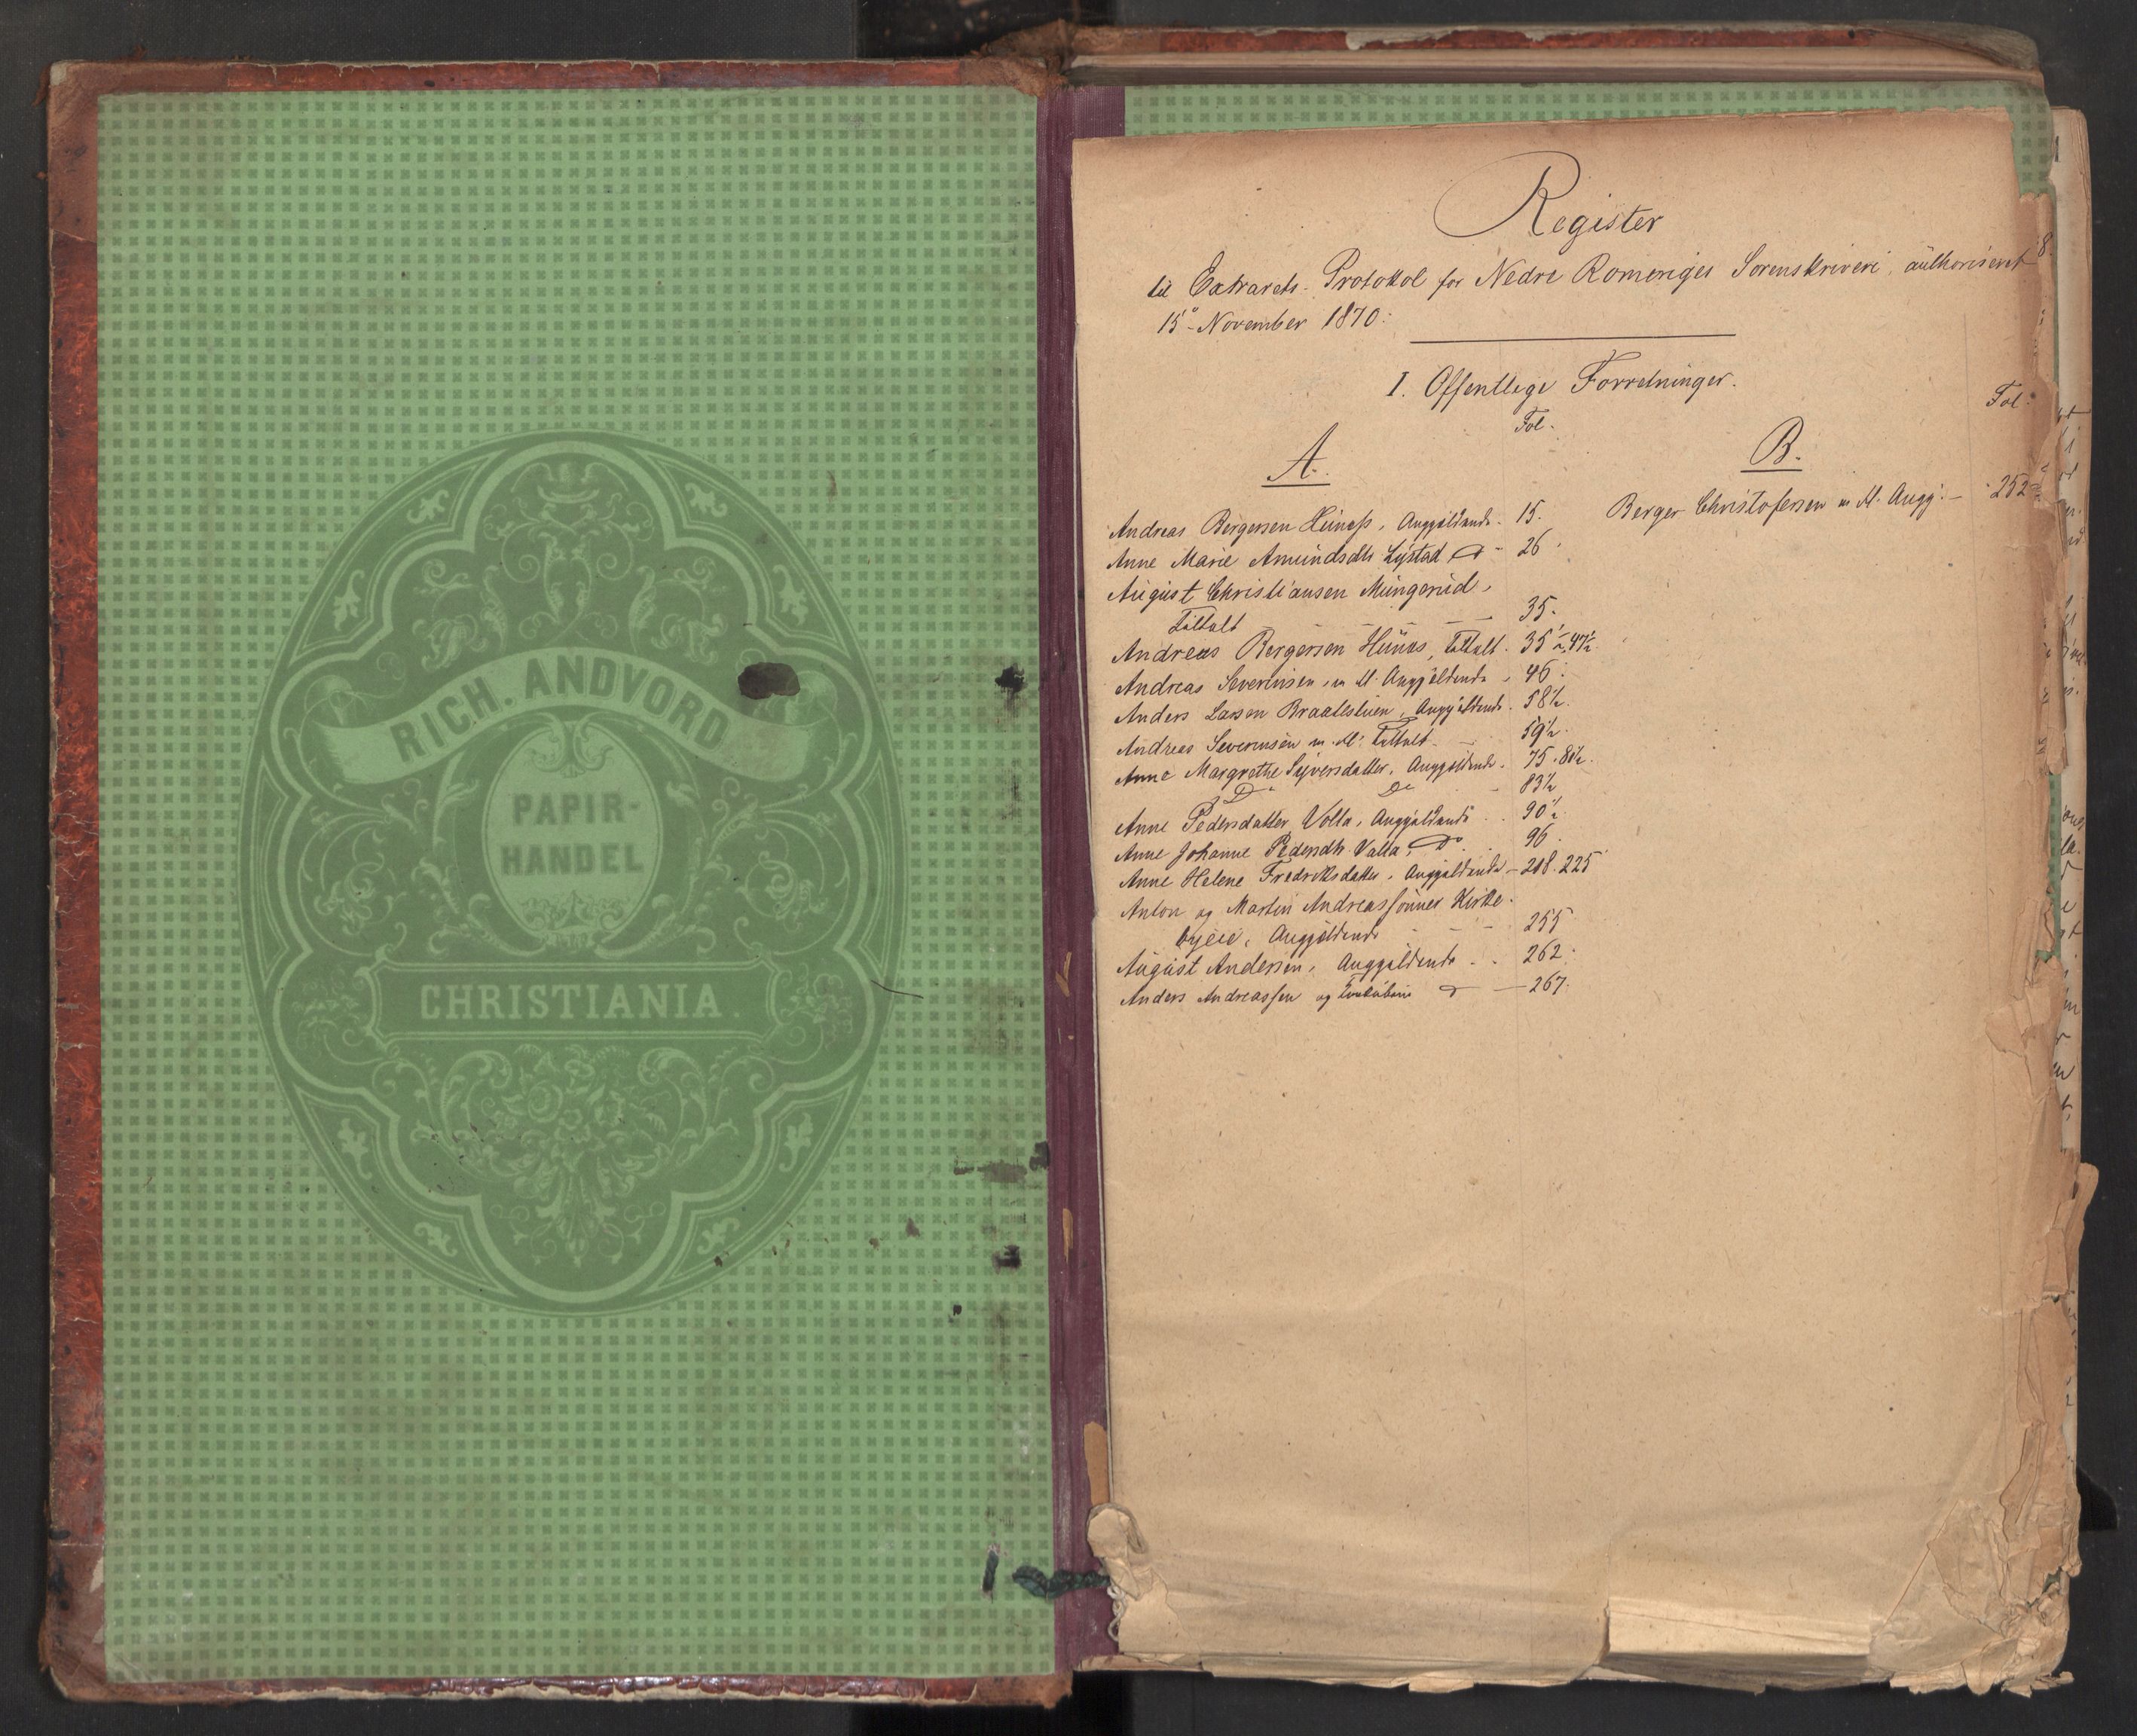 RICH. ANDVORD
PAPIR-
HANDEL
CHRISTIANIA.
Register
til Extrarets-Protokol for Nedre Romeriges Sorenskriveri, authoriseret
15de November 1870.
I. Offentlige Forretninger.
Fol.
Fol.
A.
Andreas Bergersen Hünæss, Anggjældende. 15.
Anne Marie Amündsdtr Lystad Do - 26.
Aügüst Christiansen Müngerüd,
Tiltalt - - - 35.
Andreas Bergersen Hünæs, Tiltalt. 35½, 47½.
Andreas Severinsen, m. Fl. Anggjældende, 46.
Anders Larsen Braatestüen, Anggjældende. 58½.
Andreas Severinsen m. Fl. Tiltalt. - 59½.
Anne Margrethe Syversdatter, Anggjældende. 75. 80½.
Do Do - 83½
Anne Pedersdatter Volla, Anggjældende . . 90½.
Anne Johanne Pedersdtr Valla, Do . 96.
Anne Helene Fredriksdatter, Anggjældende - 218. 225
Anton og Martin Andreassönner Kirke-
byeie, Anggjældende - - - 255
Aügüst Andersen, Anggjældende . . 262.
Anders Andreassen og Do - 267.
B.
Berger Christofersen m. Fl. Anggj. - 252